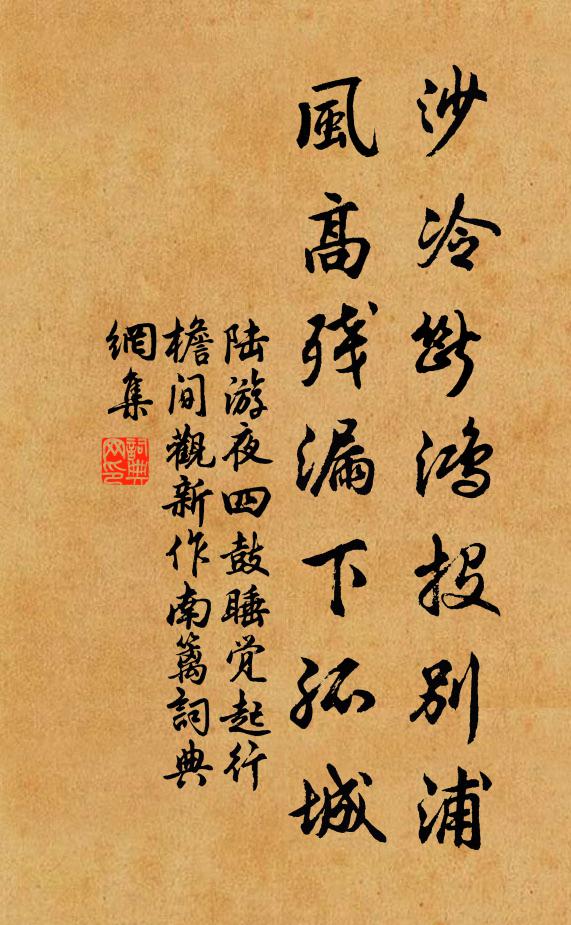 沙冷断鴻投别浦
風高残漏下孤城
陆游夜四鼓睡觉起行
檐间觀新作南篱詞典
網集
詞典网印